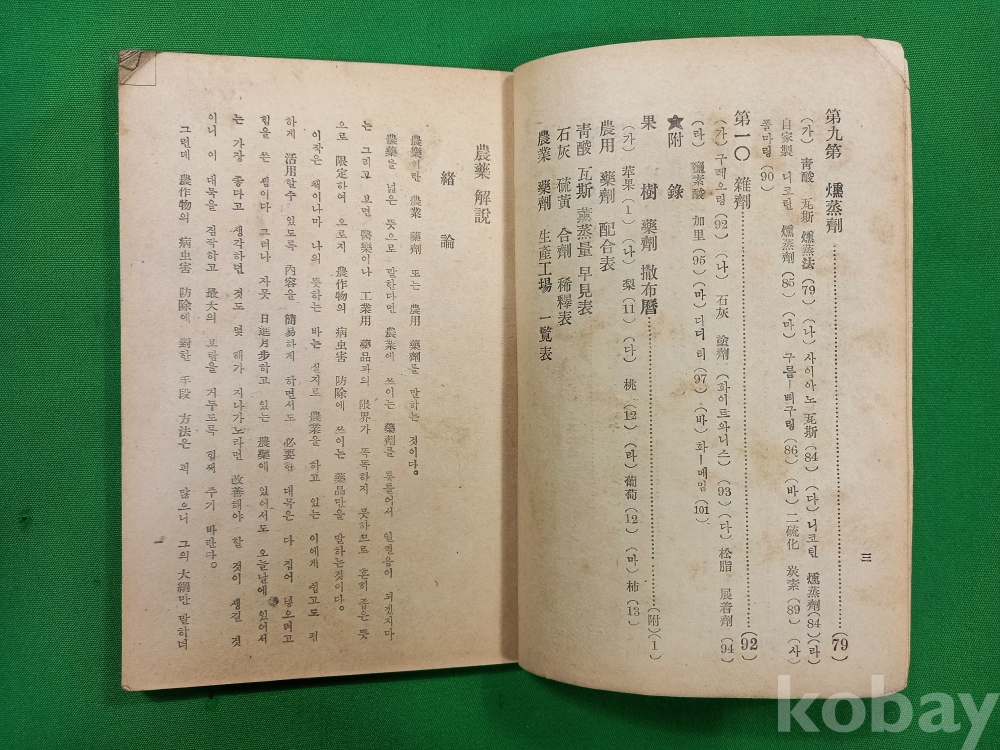 第九第 燻蒸劑 (79)
(가) 靑酸 瓦斯 燻蒸法 (79) (나) 사이아노 瓦斯 (84) (다) 니코틴 燻蒸劑 (84) (라)
自家製 니코틴 燻蒸劑 (85) (마) 구롤—삐구링 (86) (바) 二硫化 炭素 (89) (사)
쫄마링 (90)
第一〇 雜劑 (92)
(가) 구레오링 (92) (나) 石灰 塗劑 (화이트와니스) (93) (다) 松脂 展着劑 (94)
(라) 鹽素酸 加里 (95) (마) 디디티 (97) (바) 화—메밍 (101)
★附錄
果樹 藥劑 撒布曆 (附) (1)
(가) 苹果 (1) (나) 梨 (11) (다) 桃 (12) (라) 葡萄 (12) (마) 柿 (13)
農用 藥劑 配合表
靑酸 瓦斯 薰蒸量 早見表
石灰 硫黃 合劑 稀釋表
農業 藥劑 生產工場 一覽表
三
農藥 解說
緖論
農藥이란 農業 藥劑 또는 農用 藥劑를 말하는 것이다。
農藥을 넓은 뜻으로 말한다면 農業에 쓰이는 藥劑를 통틀어서 일컬음이 되겠지마
는 그리고 보면 醫藥이나 工業用 藥品과의 限界가 똑똑하지 못하므로 흔히 좁은 뜻
으로 限定하여 오로지 農作物의 病虫害 防除에 쓰이는 藥品만을 말하는것이다。
이작은 책이나마 나의 뜻하는 바는 실지로 農業을 하고 있는 이에게 쉽고도 적
하게 活用할수 있도록 內容을 簡易하게 하면서도 必要한 대목은 다 집어 넣으려고
힘을 쓴 셈이다 그러나 자못 日進月步하고 있는 農藥에 있어서도 오늘날에 있어서
는 가장 좋다고 생각하면 것도 몇 해가 지나가노라면 改善해야 할 것이 생길 것
이니 이 대목을 짐작하고 最大의 보람을 거두도록 힘써 주기 바란다。
그런데 農作物의 病虫害 防除에 對한 手段 方法은 퍽 많으니 그의 大綱만 말하며
一
kobay